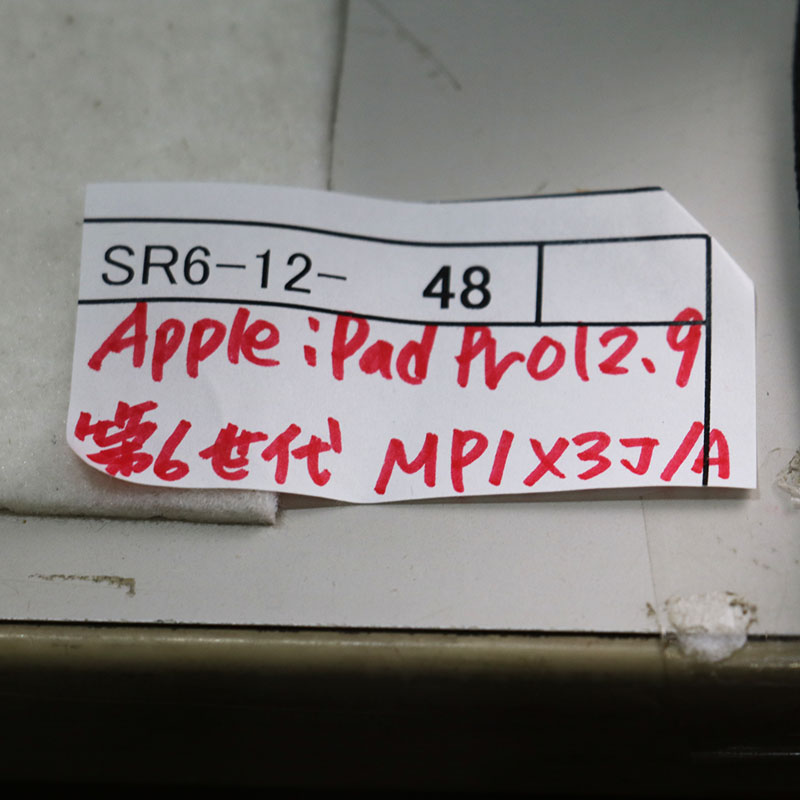 SR6-12- 48
Apple iPad Pro 12.9
第6世代 MP1X3J/A